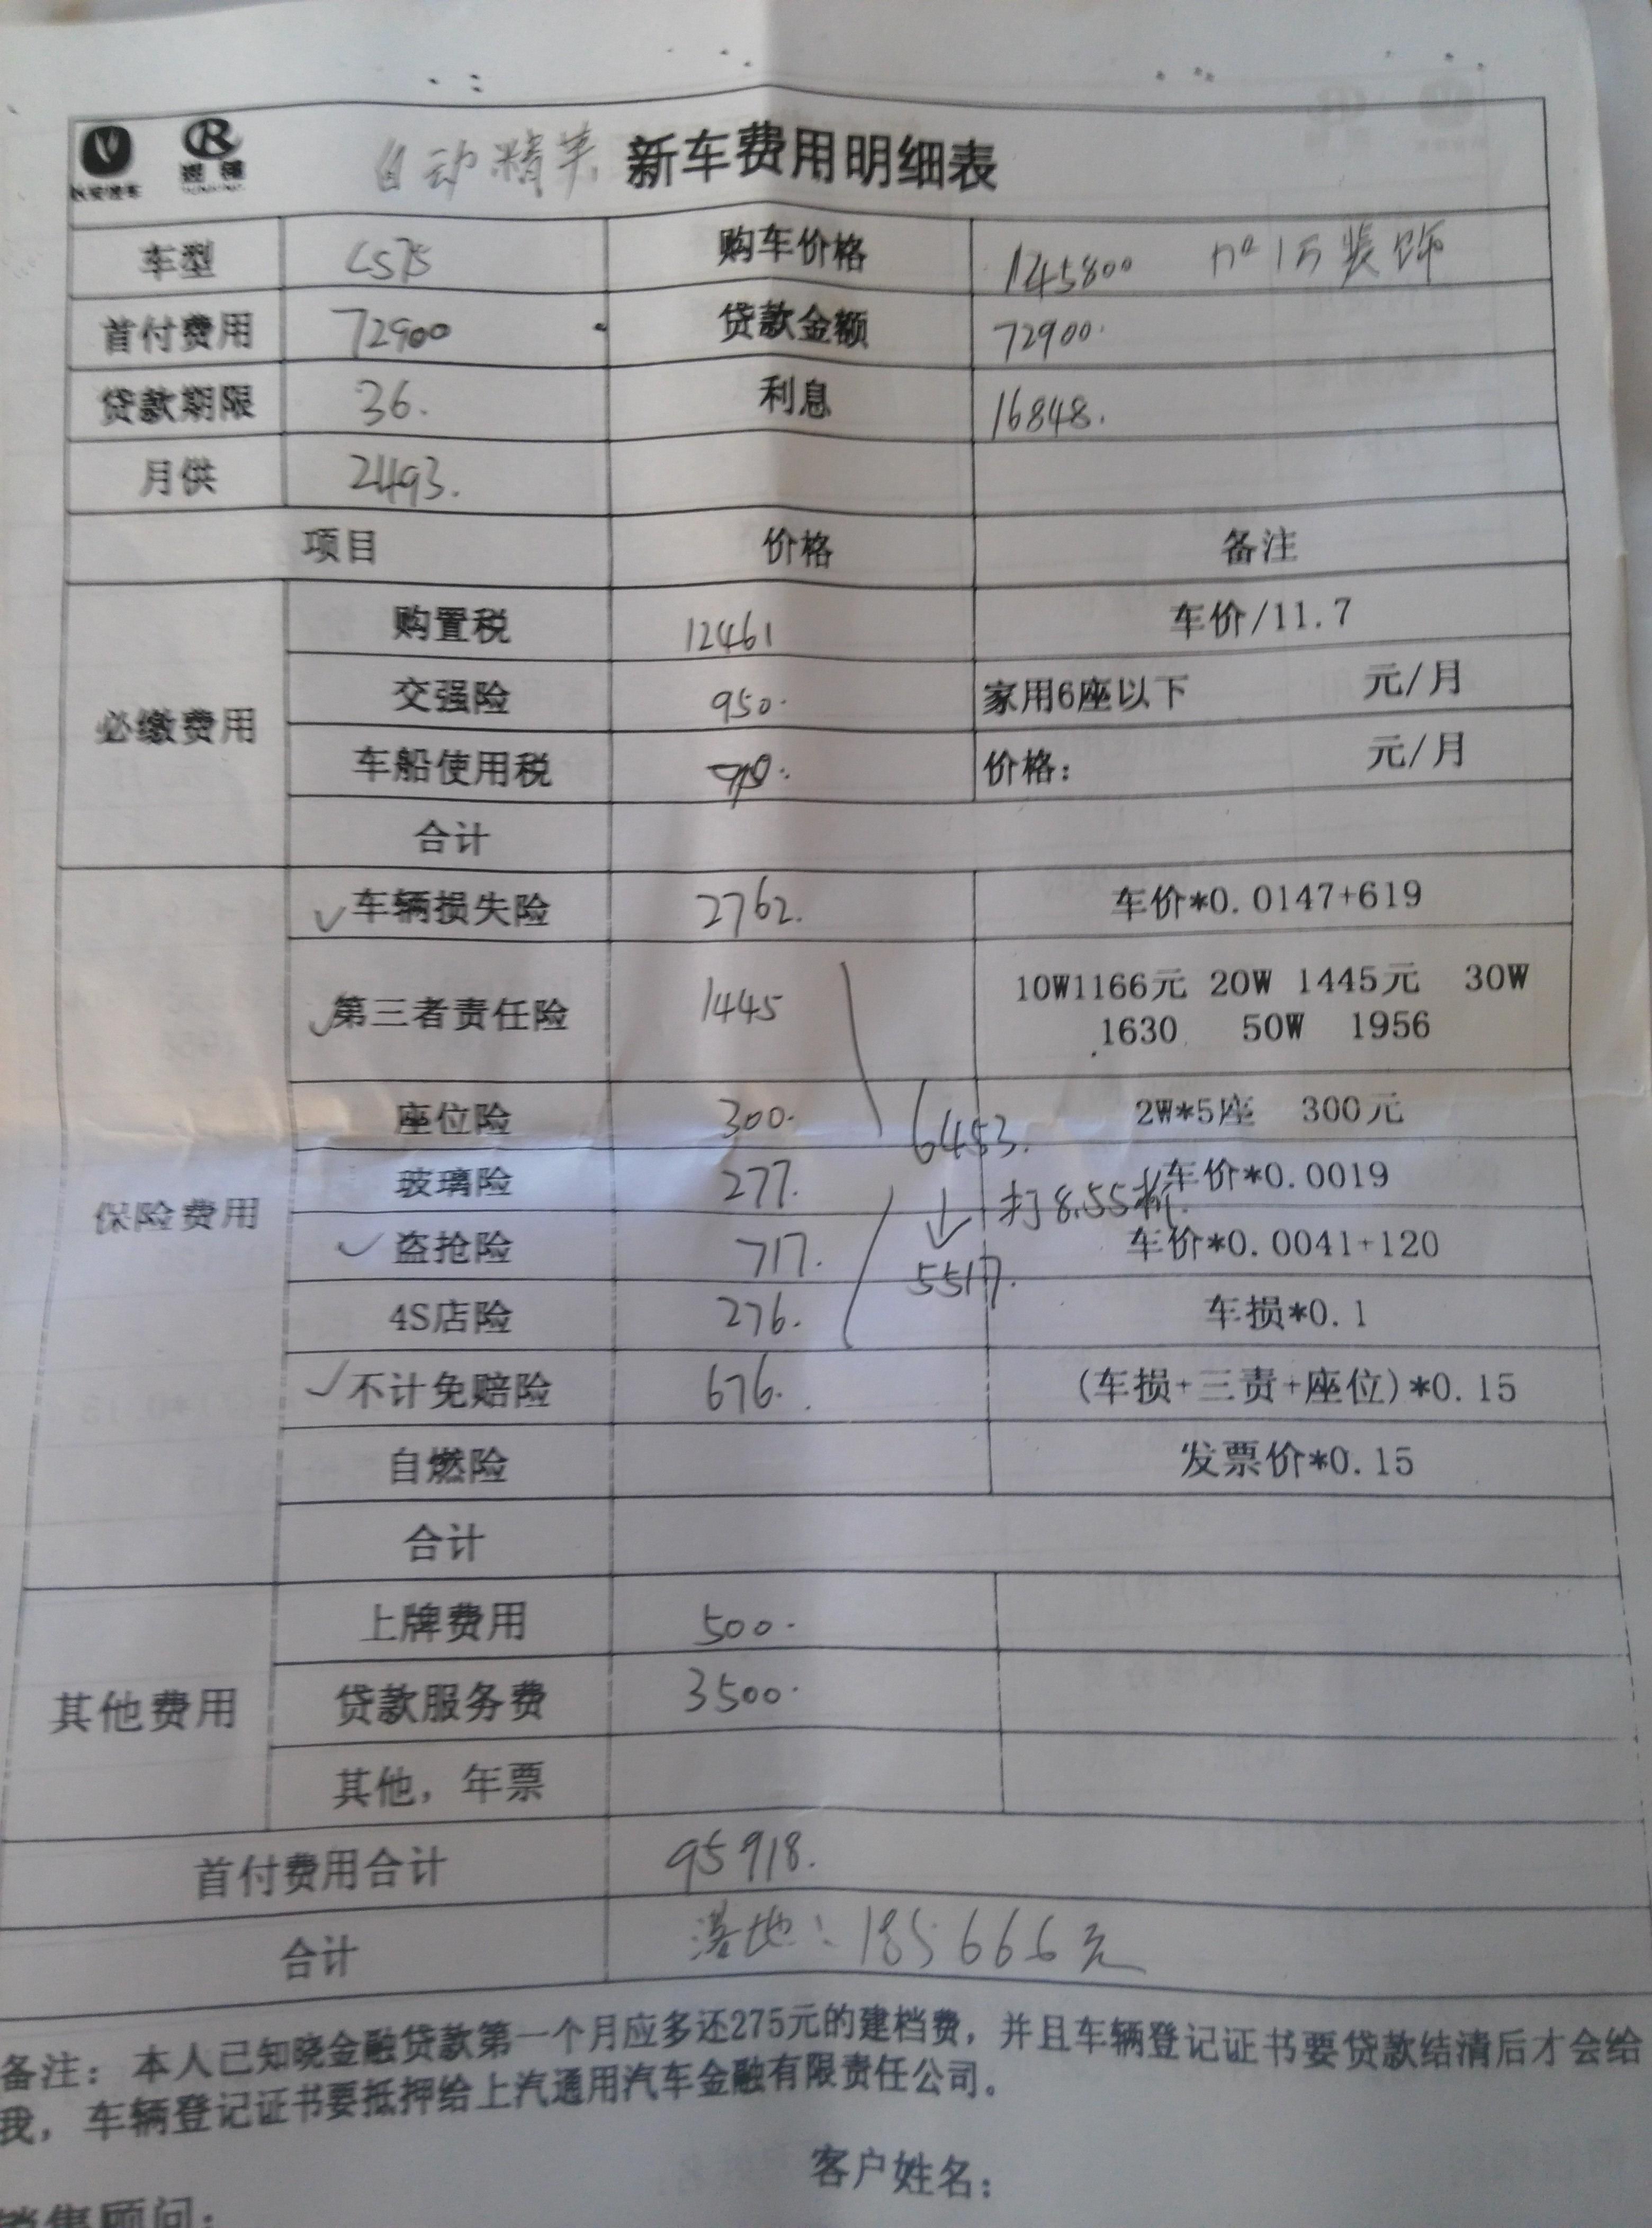 自动精英, 新车费用明细表
车型 CS75 购车价格 145800 n° 1万装饰
首付费用 72900 贷款金额 72900.
贷款期限 36. 利息 16848.
月供 2493.
项目 价格 备注
必缴费用
购置税 12461 车价/11.7
交强险 950. 家用6座以下 元/月
车船使用税 价格: 元/月
合计
保险费用
✓车辆损失险 2762. 车价*0.0147+619
✓第三者责任险 1445 10W1166元 20W 1445元 30W
1630 50W 1956
座位险 300. 2W*5座 300元
6453.
玻璃险 277. 车价*0.0019
打8.55折.
✓盗抢险 717. 车价*0.0041+120
5517.
4S店险 276. 车损*0.1
✓不计免赔险 676. (车损+三责+座位)*0.15
自燃险 发票价*0.15
合计
其他费用
上牌费用 500.
贷款服务费 3500.
其他, 年票
首付费用合计 95918.
合计 落地: 185.666元
备注: 本人已知晓金融贷款第一个月应多还275元的建档费, 并且车辆登记证书要贷款结清后才会给
我, 车辆登记证书要抵押给上汽通用汽车金融有限责任公司。
销售顾问: 客户姓名: